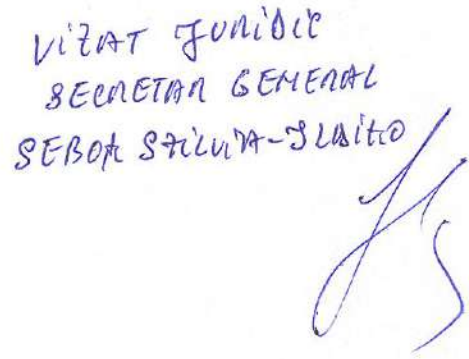 VIZAT JURIDIC
SECRETAR GENERAL
SEBOK SZILVIA-ILDIKO